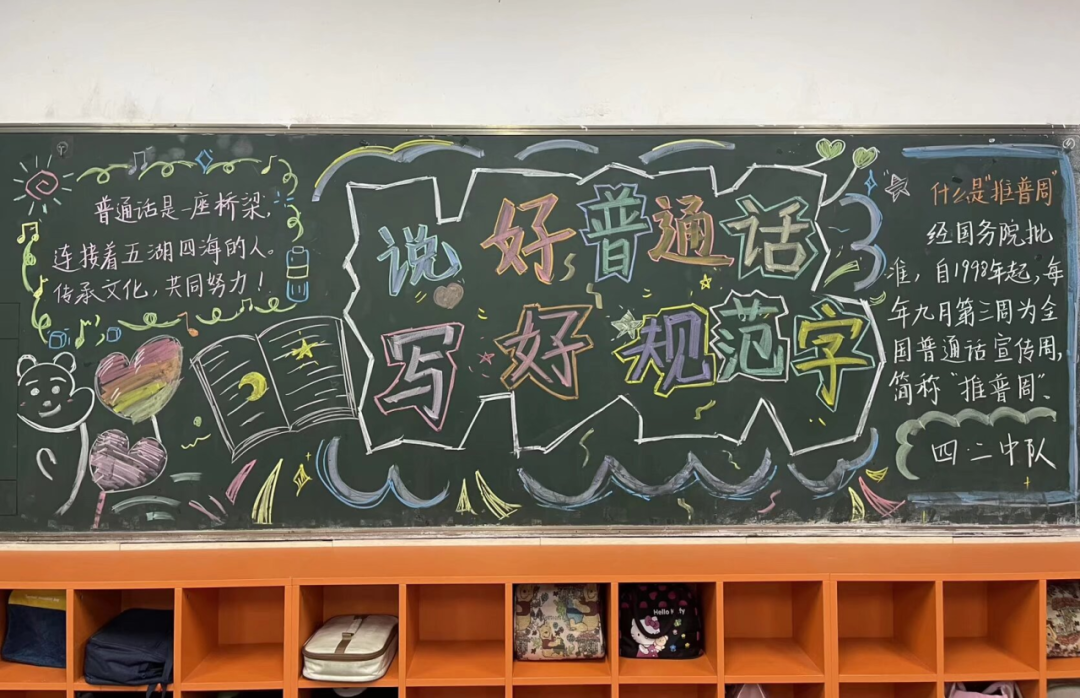 普通话是一座桥梁,
连接着五湖四海的人。
传承文化,共同努力!
说好普通话
写好规范字
什么是"推普周"
经国务院批
准,自1998年起,每
年九月第三周为全
国普通话宣传周,
简称"推普周"、
四·二中队
Hello Kitty